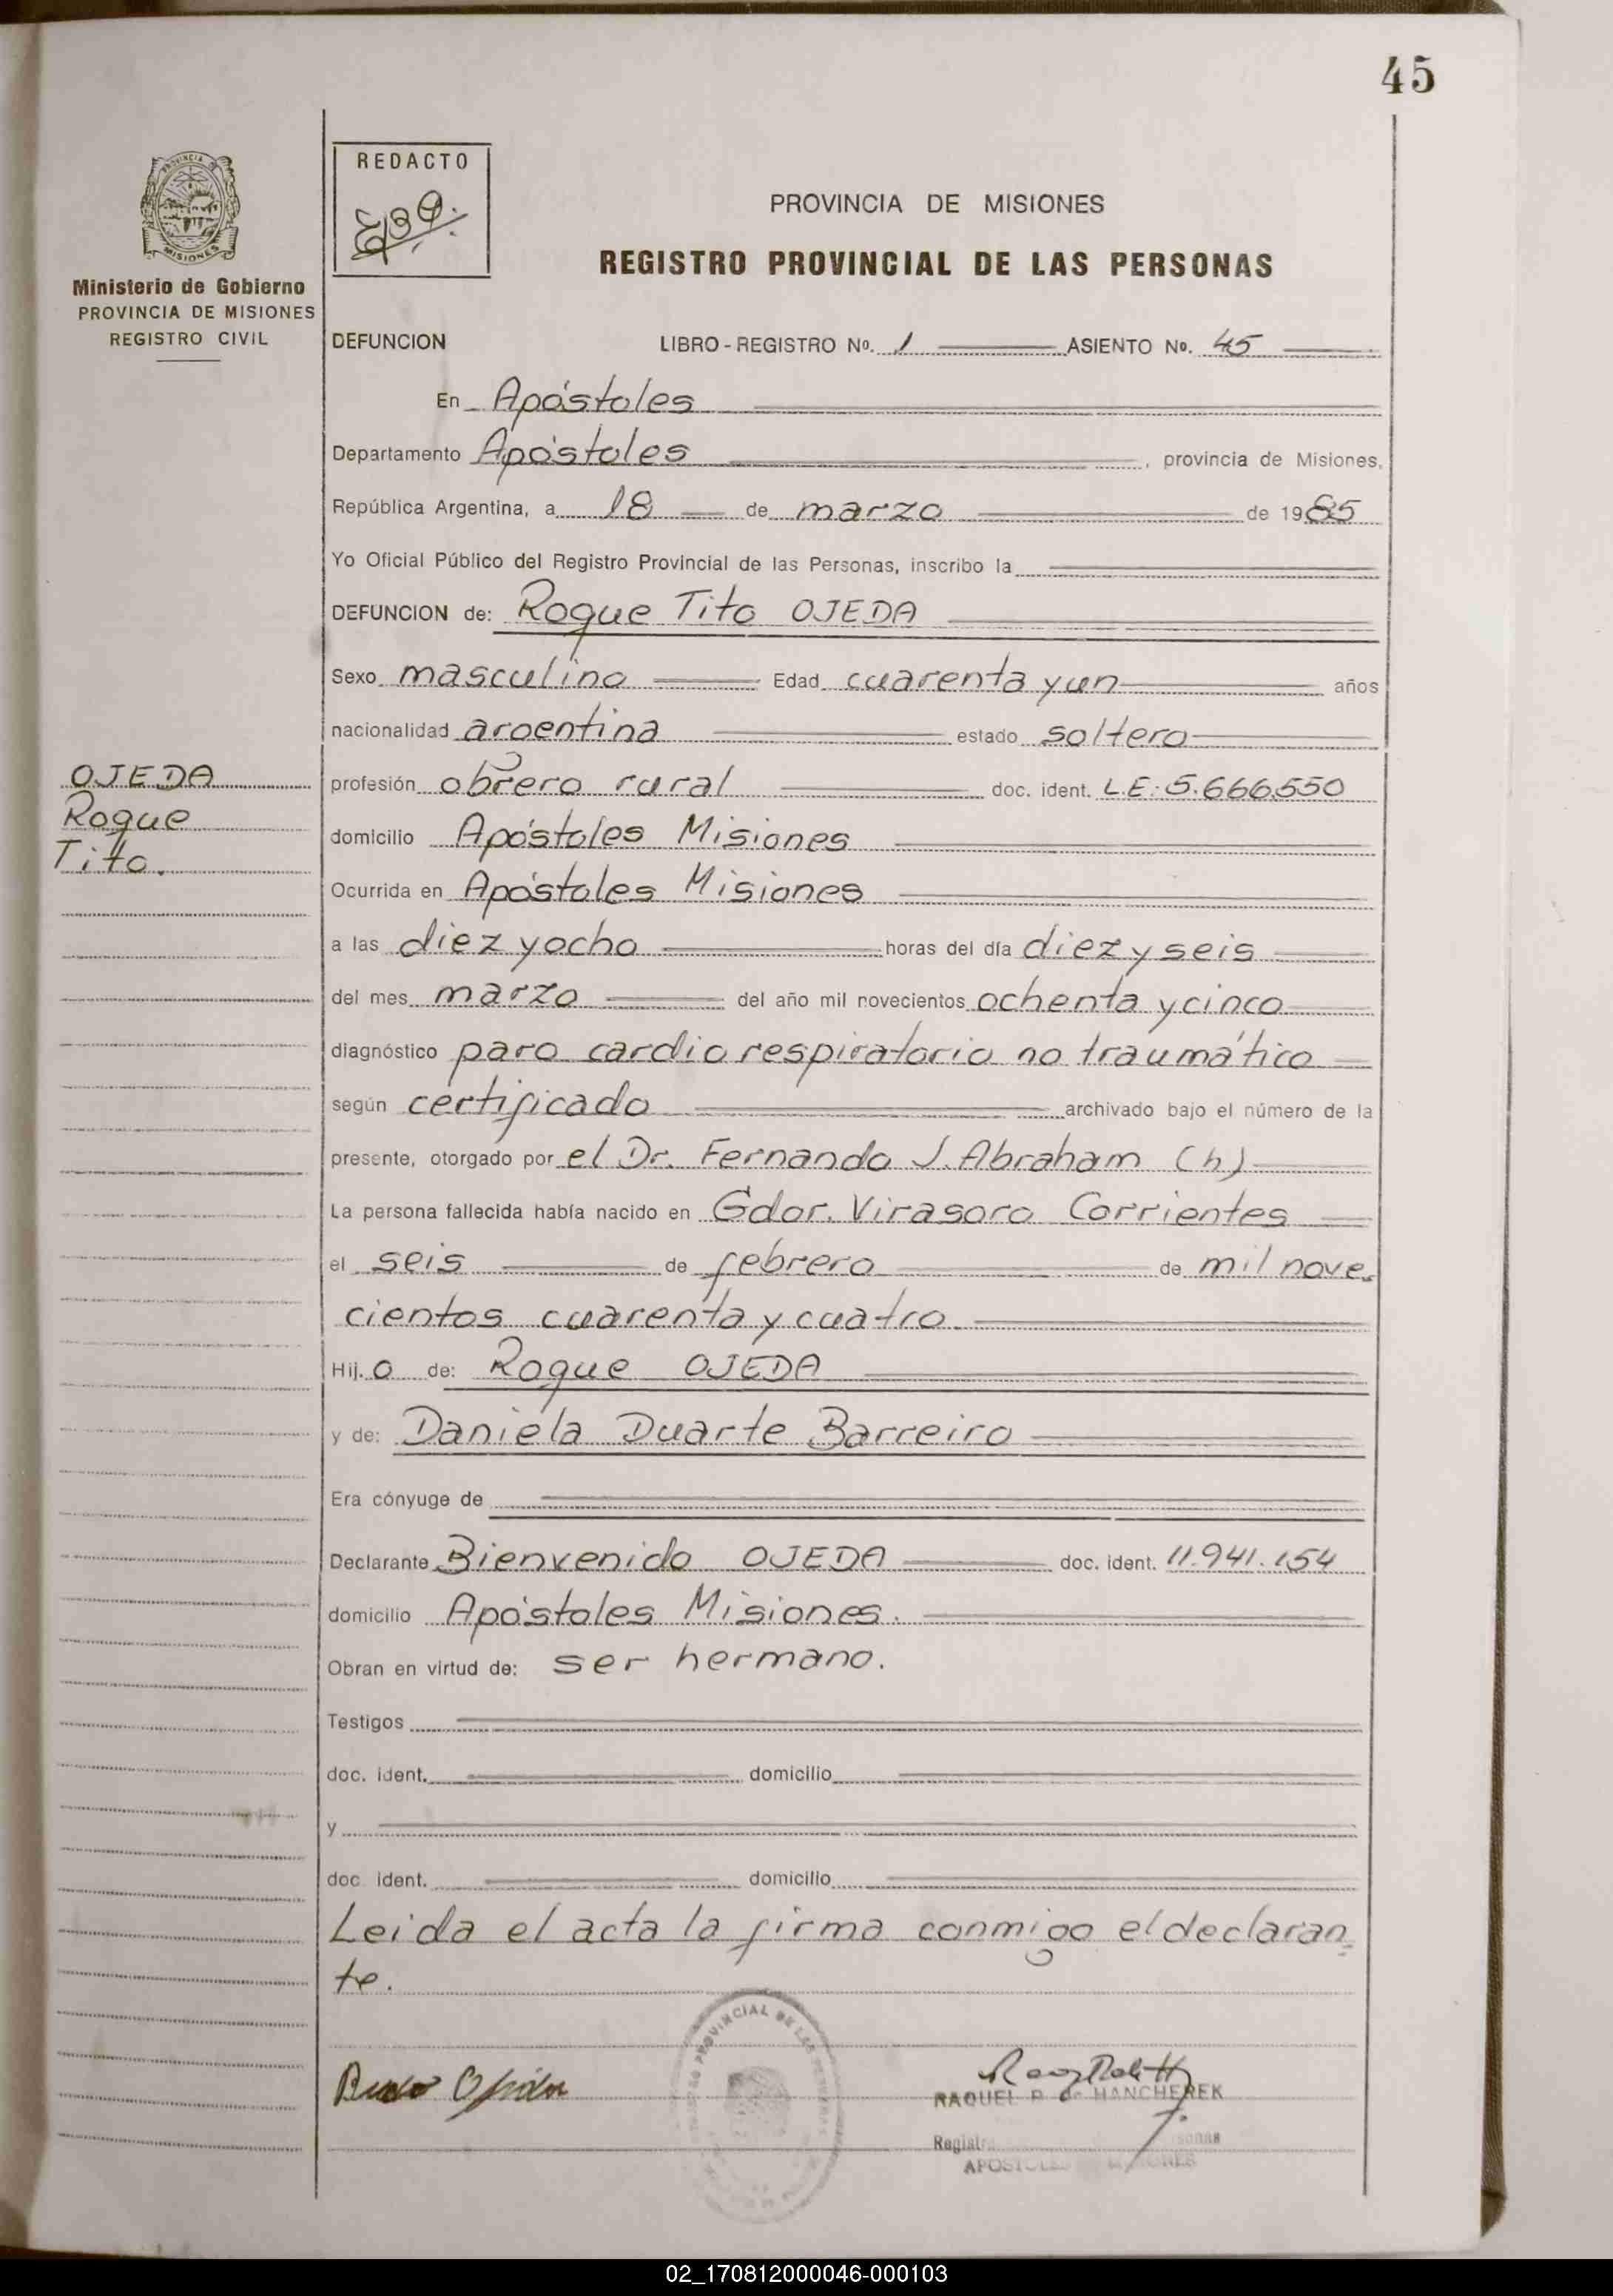 45
PROVINCIA DE MISIONES
REDACTO
PROVINCIA DE MISIONES
REGISTRO PROVINCIAL DE LAS PERSONAS
Ministerio de Gobierno
PROVINCIA DE MISIONES
REGISTRO CIVIL
DEFUNCION LIBRO - REGISTRO Nº. 1 ASIENTO Nº. 45
En Apóstoles
Departamento Apóstoles, provincia de Misiones,
República Argentina, a 18 de marzo de 1985
Yo Oficial Público del Registro Provincial de las Personas, inscribo la
DEFUNCION de: Roque Tito OJEDA
Sexo masculino Edad cuarenta y un años
nacionalidad argentina estado soltero
OJEDA
Roque
Tito.
profesión obrero rural doc. ident. L.E: 5.666.550
domicilio Apóstoles Misiones
Ocurrida en Apóstoles Misiones
a las diez y ocho horas del día diez y seis
del mes marzo del año mil novecientos ochenta y cinco
diagnóstico paro cardio respiratorio no traumático
según certificado archivado bajo el número de la
presente, otorgado por el Dr. Fernando J. Abraham (h)
La persona fallecida había nacido en Gdor. Virasoro Corrientes
el seis de febrero de mil nove-
cientos cuarenta y cuatro
Hij.o de: Roque OJEDA
y de: Daniela Duarte Barreiro
Era cónyuge de
Declarante Bienvenido OJEDA doc. ident. 11.941.154
domicilio Apóstoles Misiones.
Obran en virtud de: ser hermano.
Testigos
doc. ident. domicilio
y
doc. ident. domicilio
Leida el acta la firma conmigo el declaran-
te.
RAQUEL P. de HANCHEREK
APOSTOLES MISIONES
02_170812000046-000103